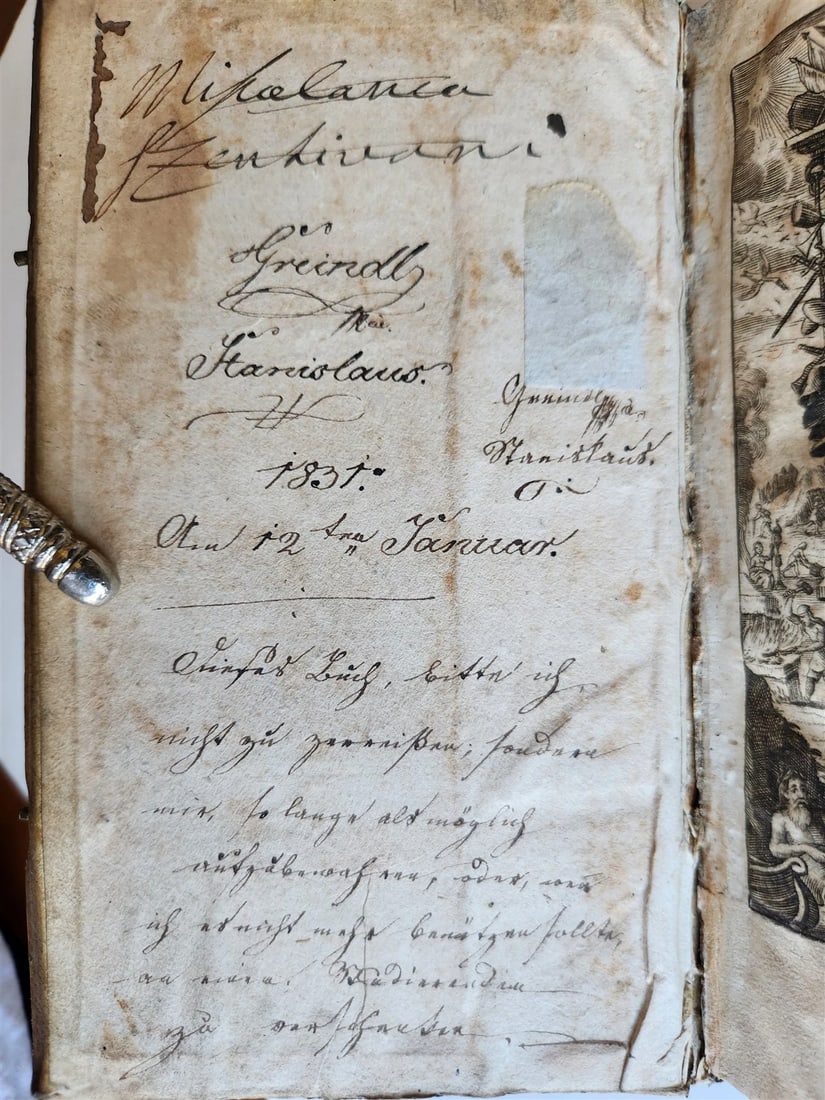 Miscelanea
Szentivani
Greindl
Stanislaus.
1831.
Am 12ten Januar.
Greindl
Stanislaus.
Dieses Buch, bitte ich
nicht zu zerreißen; sondern
mir, so lange als möglich
aufzubewahren, oder, wen
ich es nicht mehr benützen sollte,
an einen Studierenden
zu verschenken